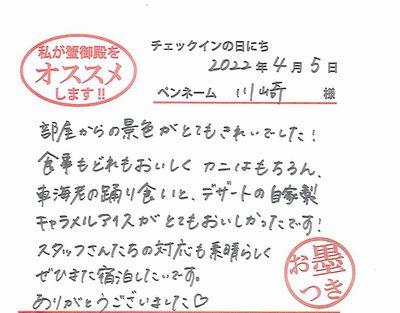 私が蟹御殿を
オススメ
します!!
チェックインの日にち
2022年4月5日
ペンネーム 川崎 様
部屋からの景色がとてもきれいでした!
食事もどれもおいしく カニはもちろん、
車海老の踊り食いと、デザートの自家製
キャラメルアイスがとてもおいしかったです!
スタッフさんたちの対応も素晴らしく
ぜひまた宿泊したいです。
ありがとうございました♡
お墨
つき